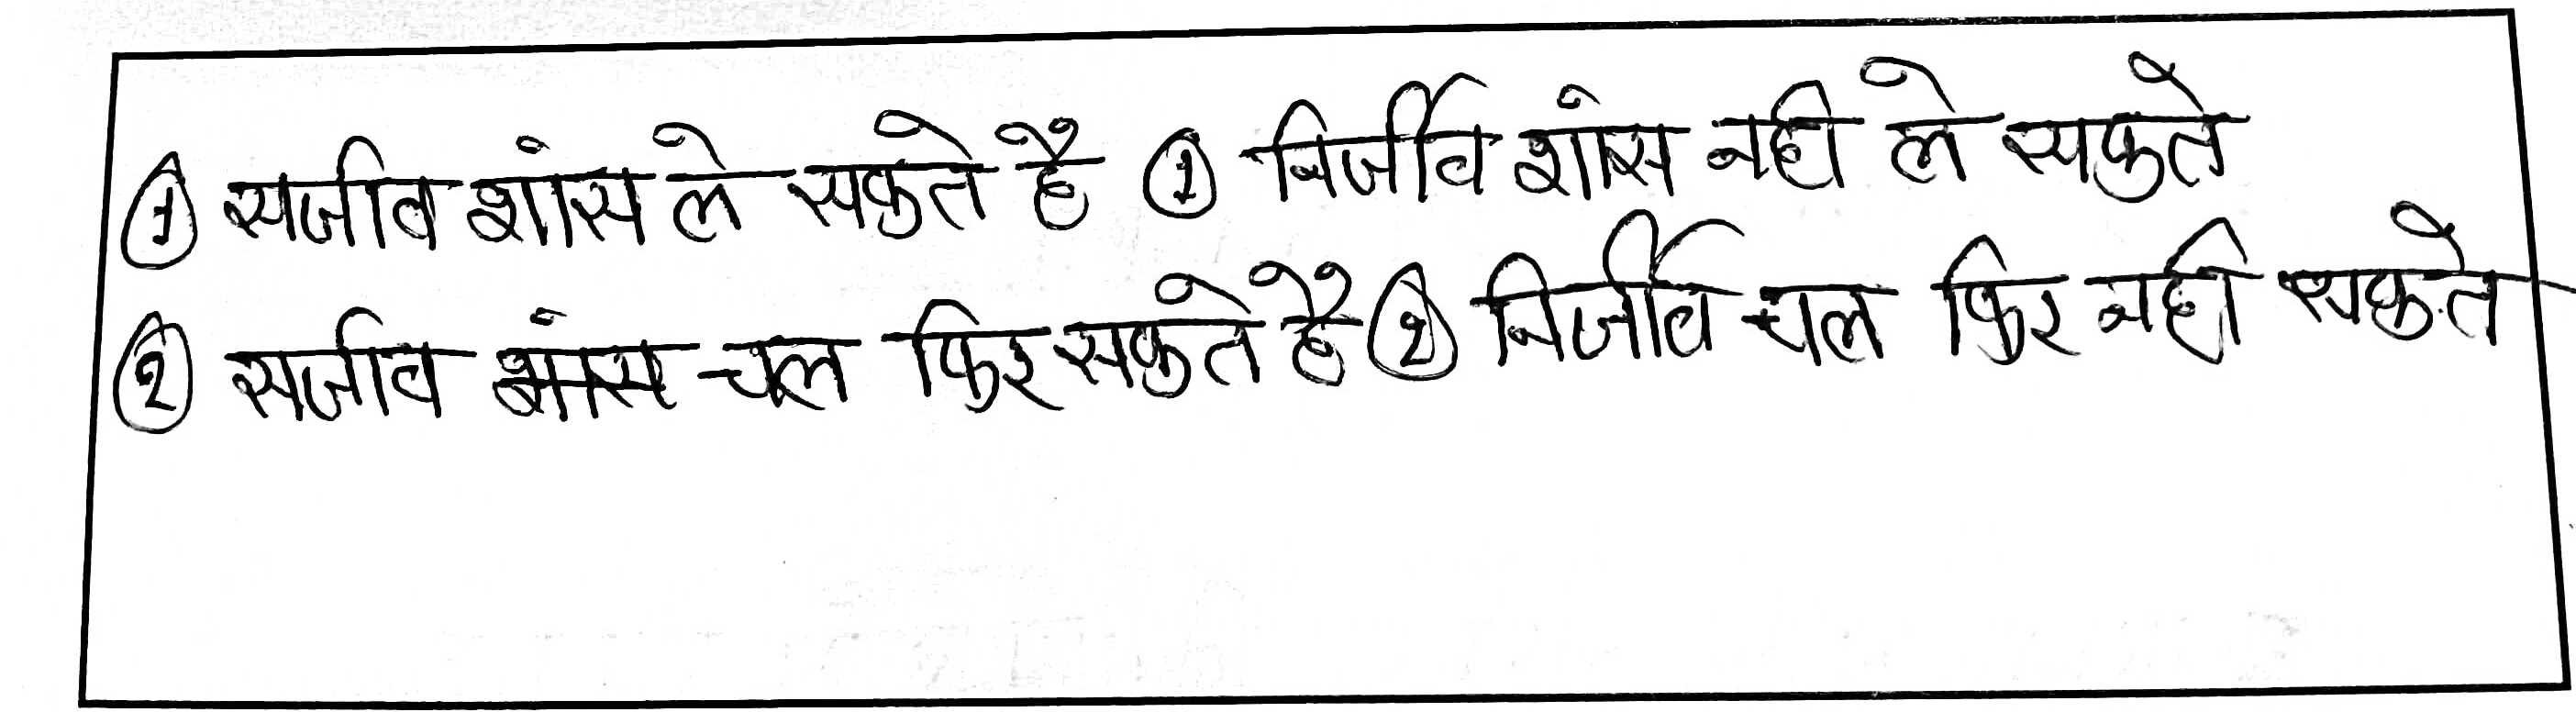 ① सजीव शांस ले सकते है ① निर्जीव शांस नही ले सकते
② सजीव शांस चल फिर सकते है ② निर्जीव चल फिर नही सकते